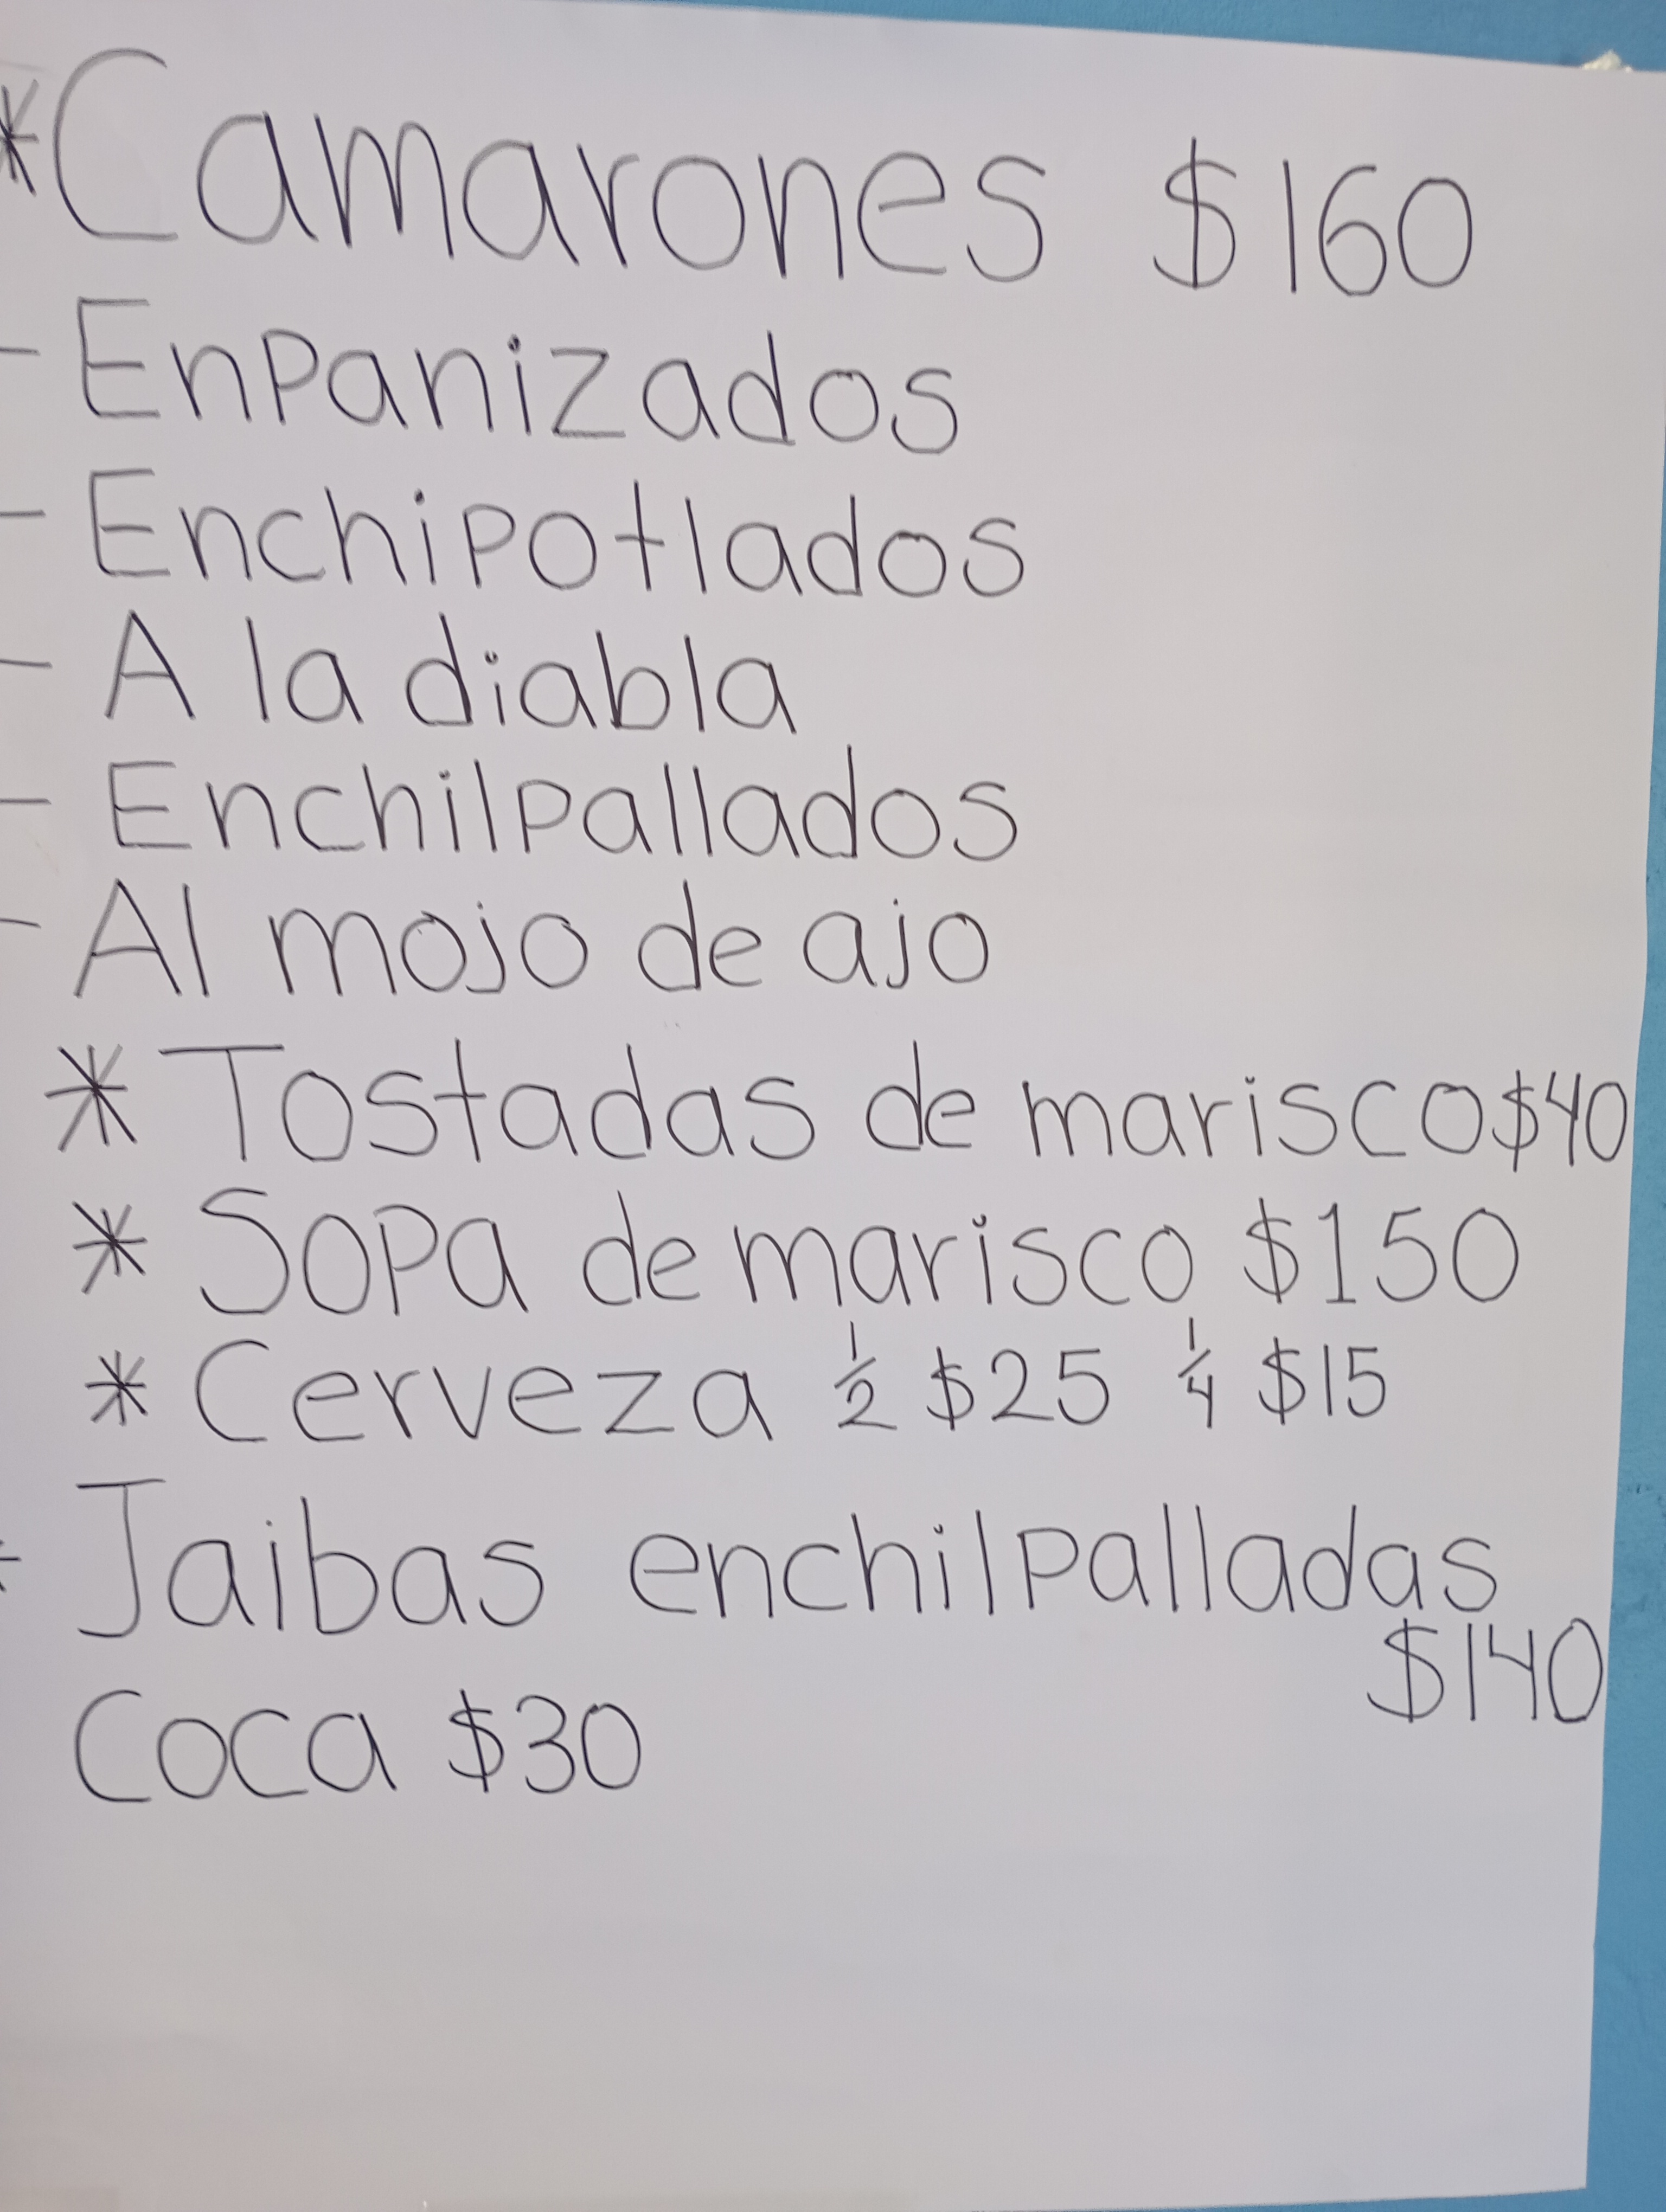 *Camarones $160
- Enpanizados
- Enchipotlados
- A la diabla
- Enchilpallados
- Al mojo de ajo
* Tostadas de marisco $40
* Sopa de marisco $150
* Cerveza 1/2 $25 1/4 $15
* Jaibas enchilpalladas
$140
Coca $30